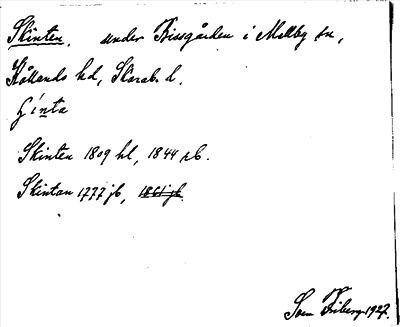 Skinten. under Bissgården i Mellby sn,
Kållands hd, Skarab. l.
ʃínta
Skinten 1809 hl, 1844 sb.
Skintan 1777 jb, 1861 jb.
Sven Friberg 1927.